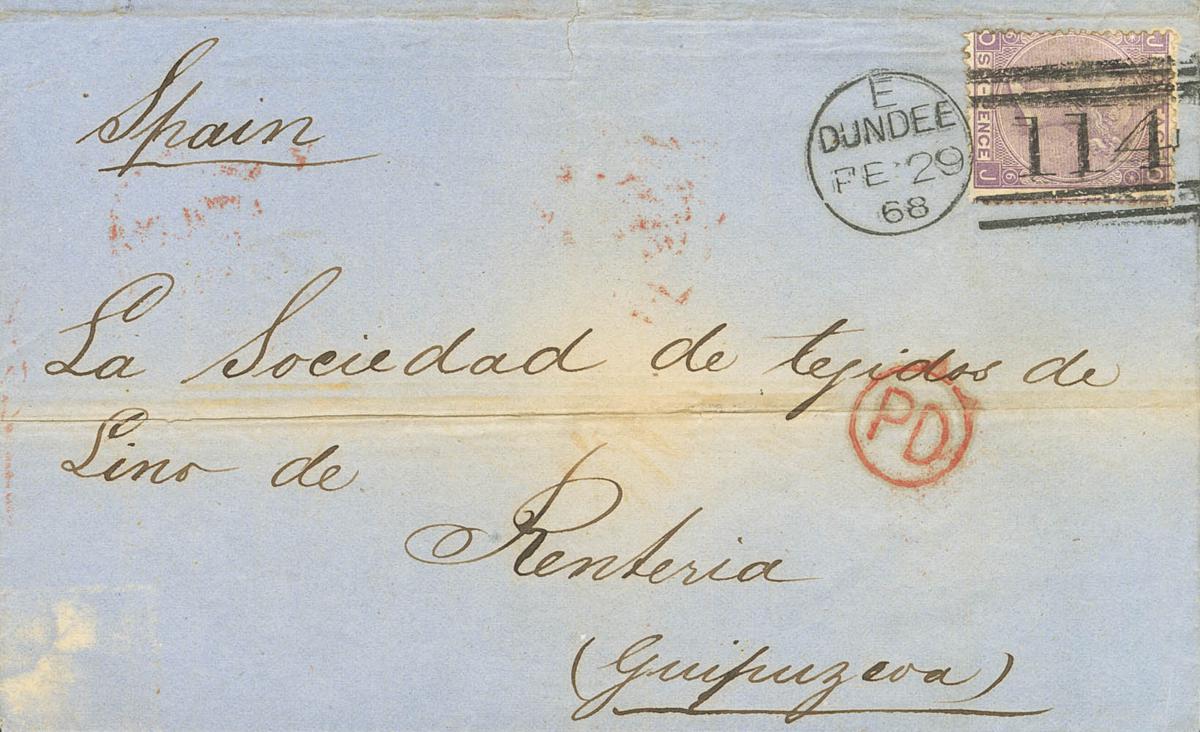 Spain
E
DUNDEE
FE 29
68
114
SIX-PENCE
La Sociedad de tejidos de
Lino de
PD
Renteria
(Guipuzcoa)